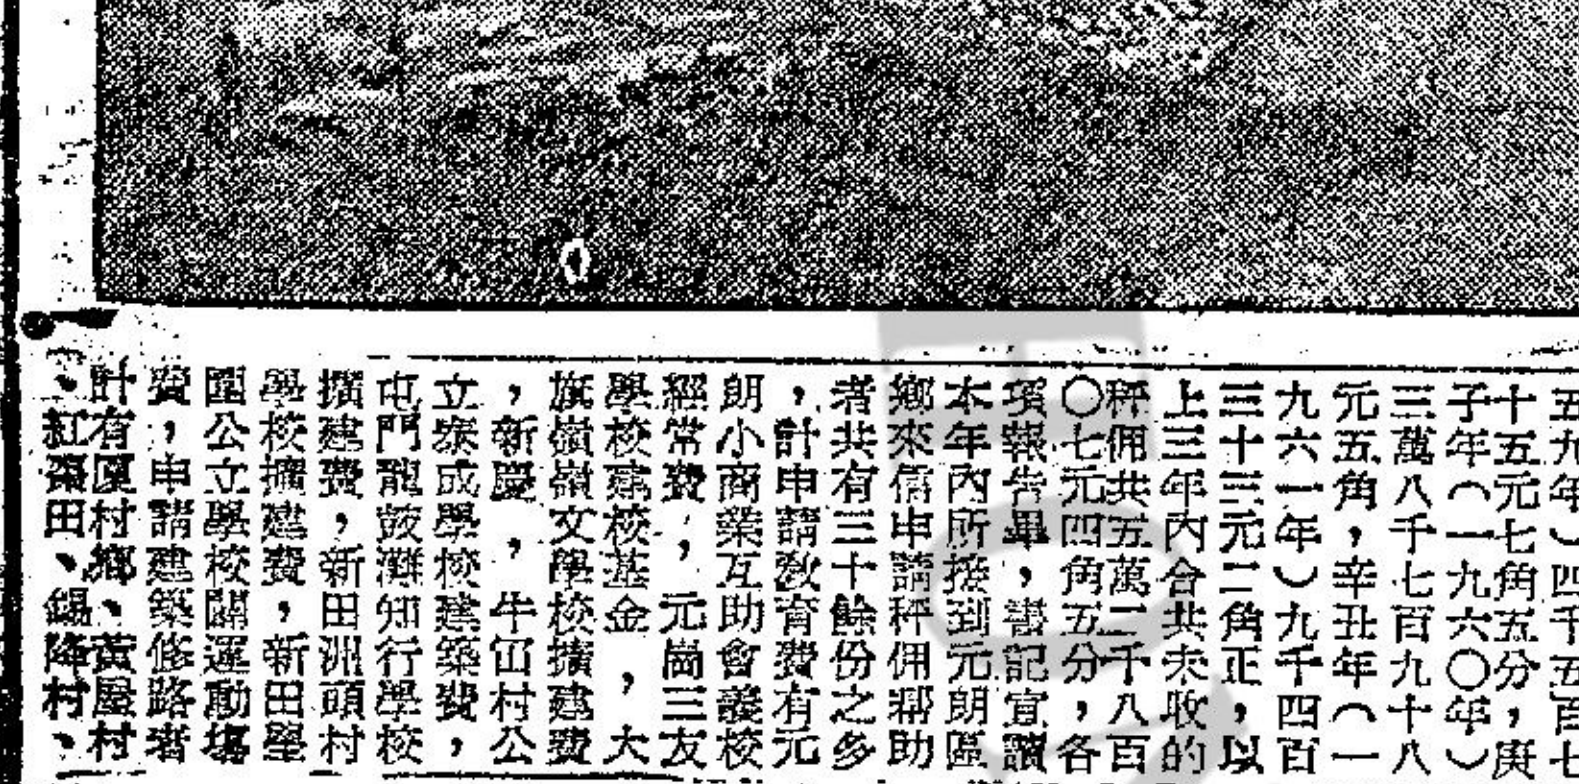 五九年）四千五百七
十五元七角五分，庚
子年（一九六〇年）
三萬八千七百九十八
元五角，辛丑年（一
九六一年）九千四百
三十三元二角正，以
上三年內合共未收的
秤佣共五萬二千八百
〇七元四角五分，各
項報告畢，書記宣讀
本年內所接到元朗區
鄉來信申請秤佣幫助
者共有三十餘份之多
，計申請敎育費有元
朗小商業互助會義校
經常費，元崗三友
學校建校基金，大
旗嶺嶺文學校擴建費
，新慶，牛㕓村公
立泰成學校建築費，
屯門龍鼓灘知行學校
擴建費，新田洲頭村
學校擴建費，新田
圍公立學校闢運動場
費，申請建築修路者
計有厦村鄉、黃屋村
、紅棗田、錫降村、